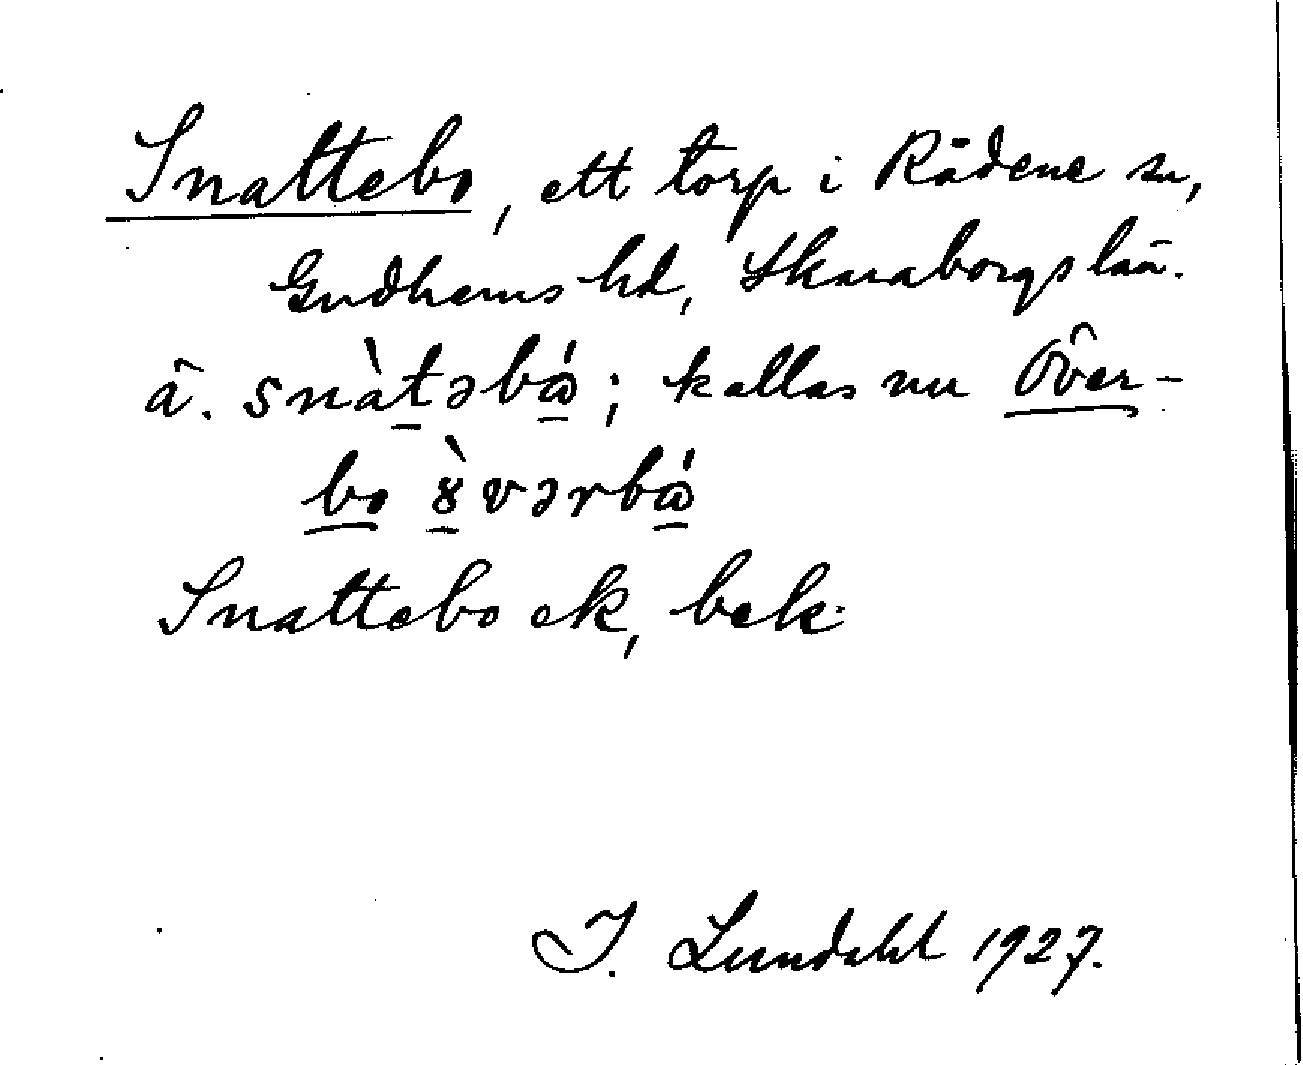 Snattebo, ett torp i Rådene sn,
Gudhems hd, Skaraborgs län.
ä. snàtəbά̱; kallas nu Över-
bo ɤ̀vərbά̱
Snattebo ek, bek.
I. Lundahl 1927.